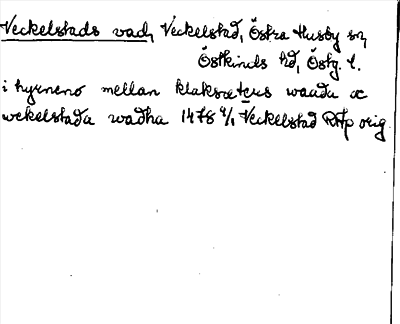 Veckelstads vad, Veckelstad, Östra Husby sn,
Östkinds hd, Östg. l.
i hyrneno mellan klaksæters waada oc
wekelstada wadha 1478 4/1 Veckelstad RAp orig.